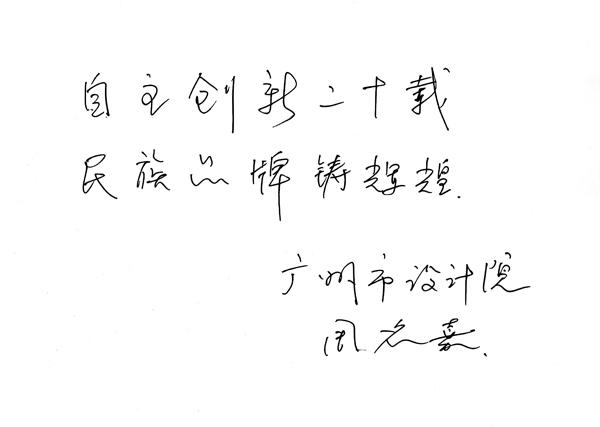 自主创新二十载
民族品牌铸辉煌.
广州市设计院
周名嘉.